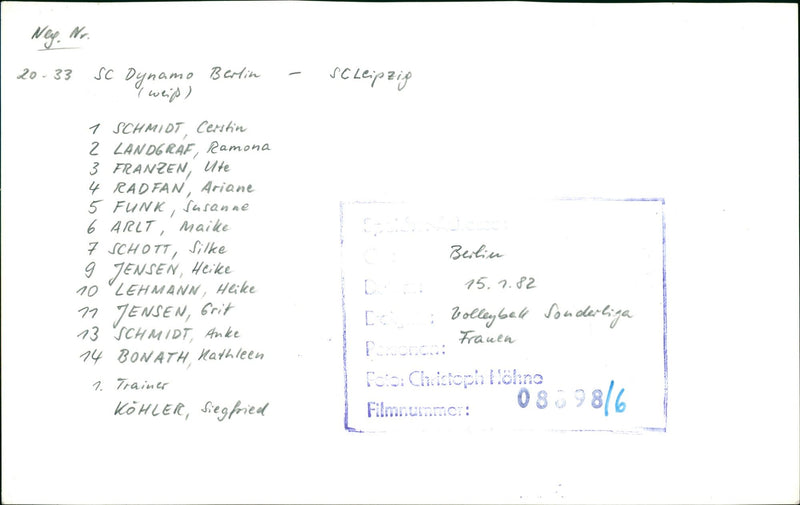 Neg. Nr.
20-33 SC Dynamo Berlin - SC Leipzig
(weiß)
1 SCHMIDT, Cerstin
2 LANDGRAF, Ramona
3 FRANZEN, Ute
4 RADFAN, Ariane
5 FUNK, Susanne
6 ARLT, Maike
7 SCHOTT, Silke
9 JENSEN, Heike
10 LEHMANN, Heike
11 JENSEN, Grit
13 SCHMIDT, Anke
14 BONATH, Kathleen
1. Trainer
KÖHLER, Siegfried
Berlin
15.1.82
Volleyball Sonderliga
Frauen
Personen:
Foto: Christoph Höhne
Filmnummer: /6